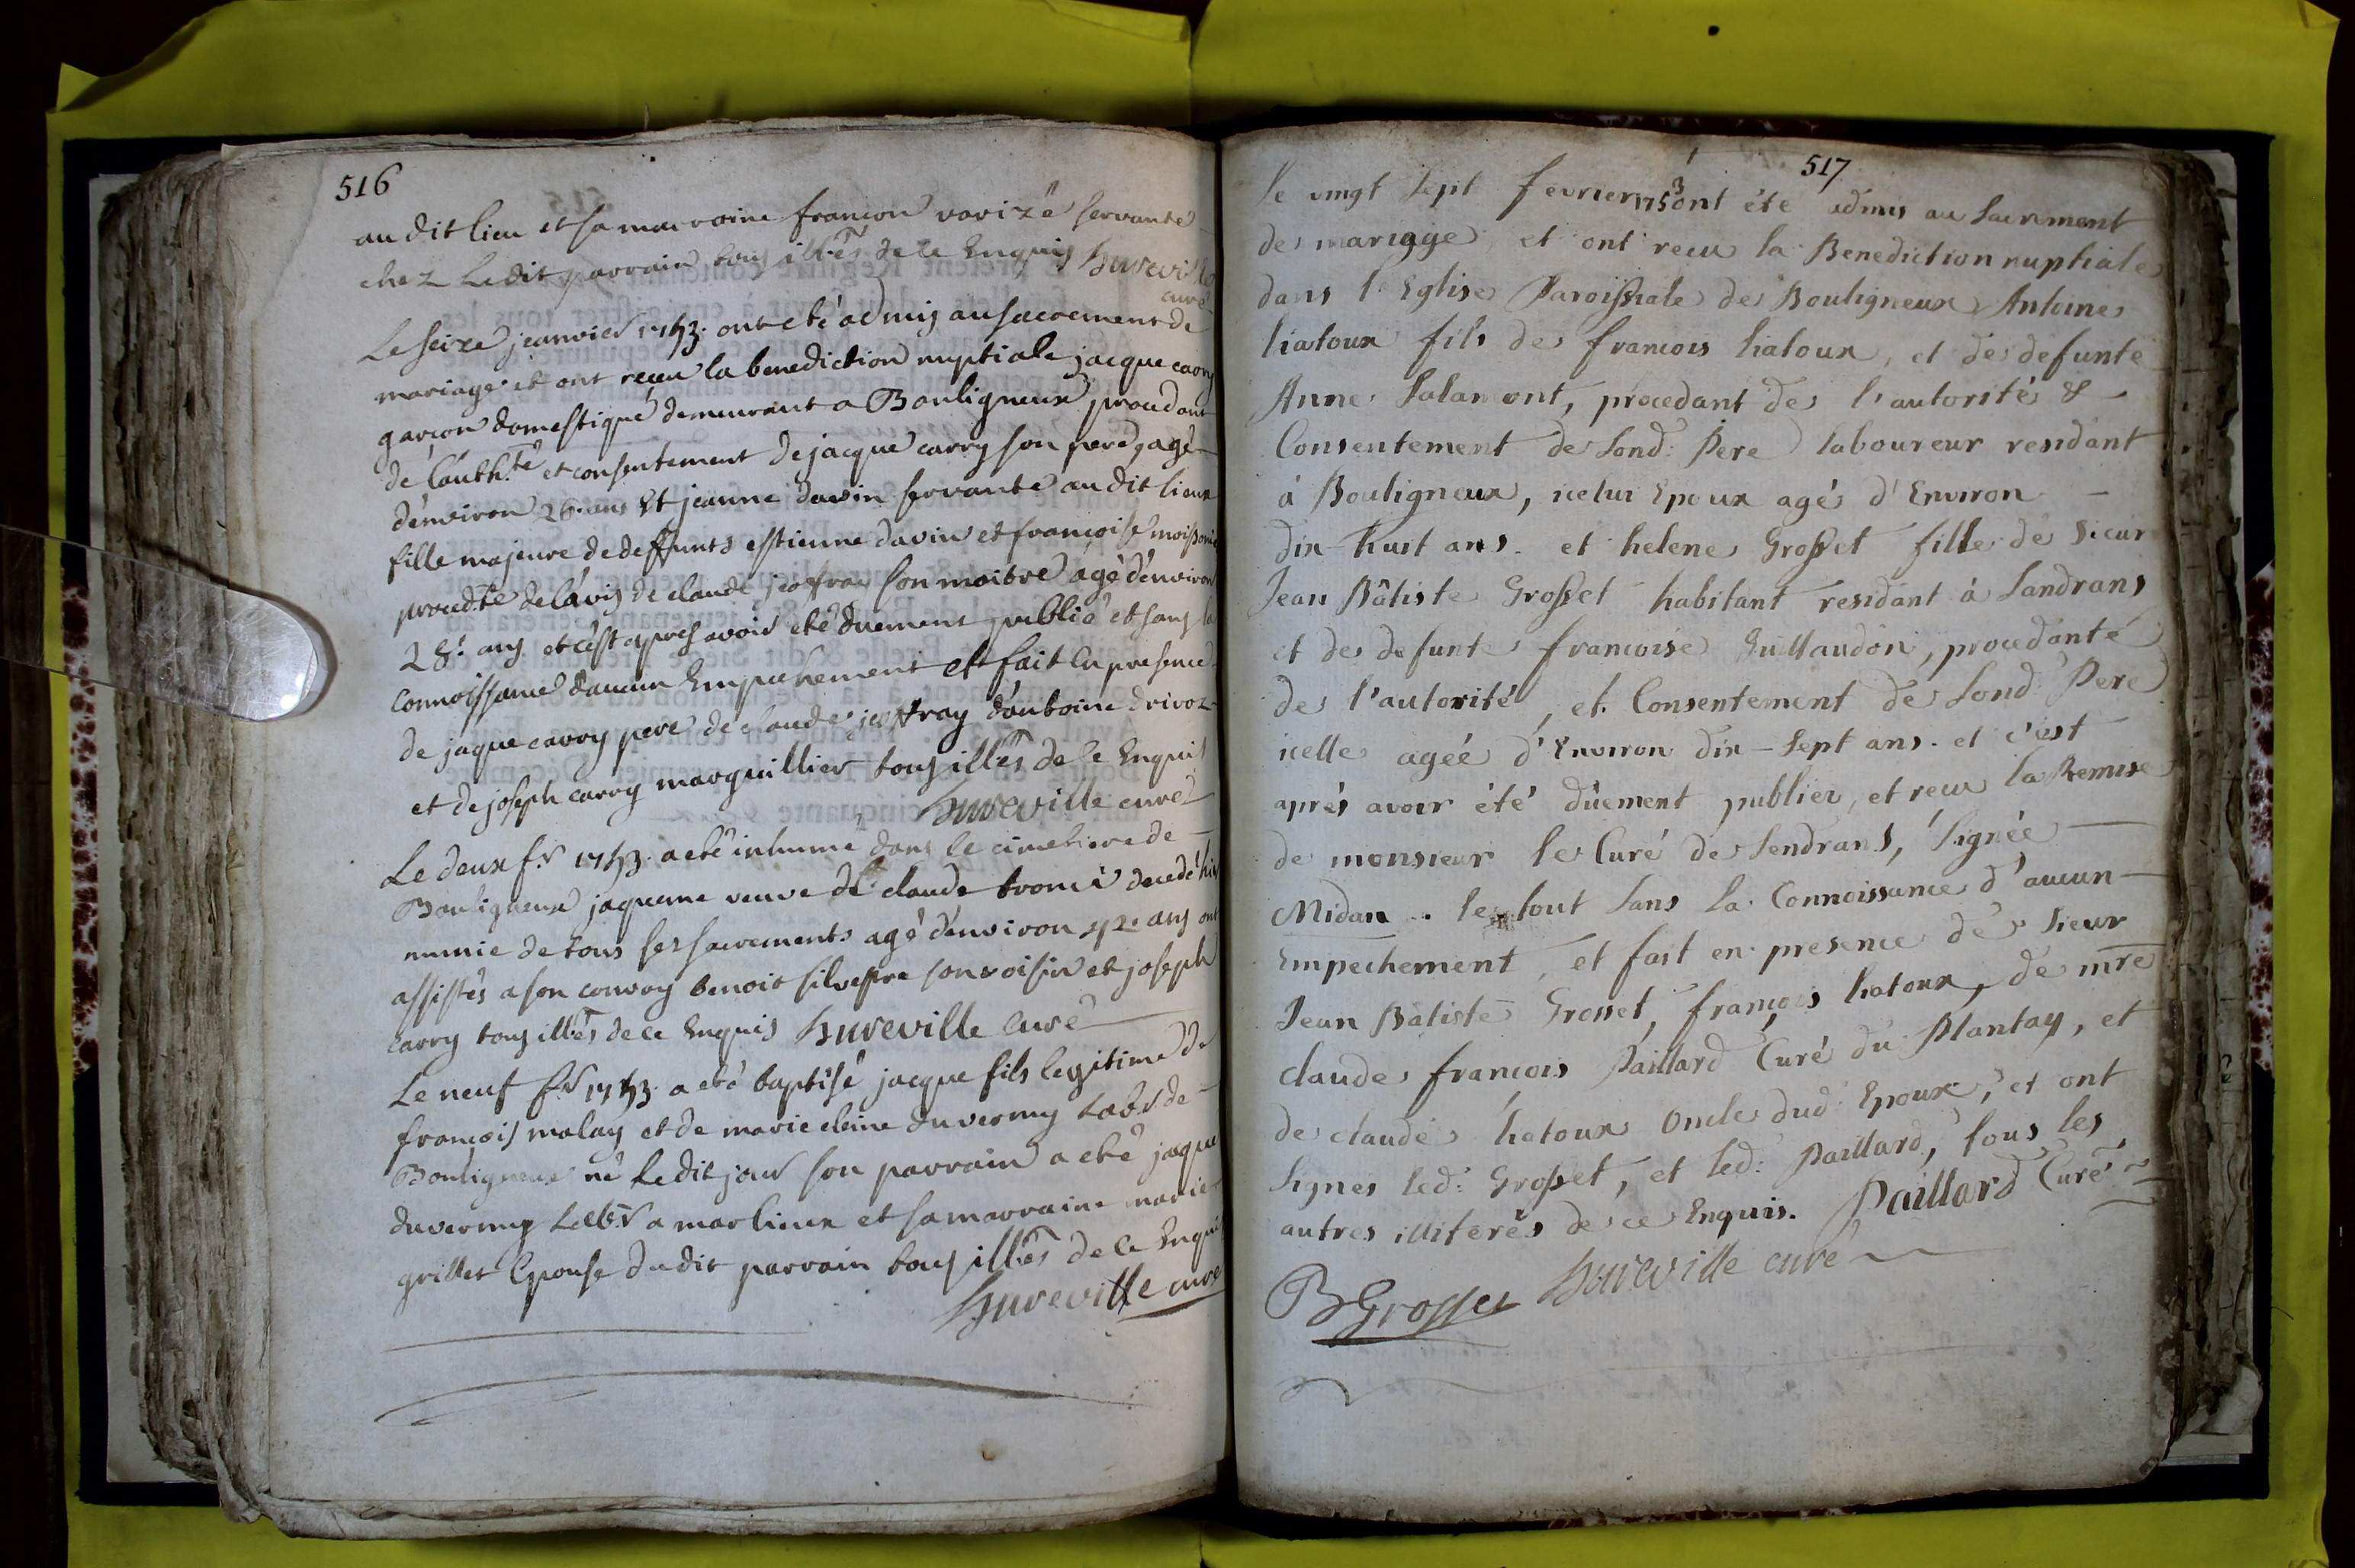 516
au dit lieu et sa marraine françon varizé servante
chez Ledit parrain tous illres de ce Enquis hureville
curé
Le seize jeanvier 1753. ont eté admis au sacrement de
mariage et ont reçeu la benediction nuptiale jacque carry
garçon domestique demeurant a Bouligneux procedant
de l'auth.té et consentement de jacque carry son pere, agé
d'environ 26. ans Et jeanne davin servante au dit lieux
fille majeure de deffunts estienne davin et françoise
proced.te de l'avis de claude son maitre agé d'environ
28. ans et c'est apres avoir eté duement publié et sans la
connoissance d'aucun Empechement et fait en presence
de jaque carry pere de claude jeoffray d'antoine drivoz
et de joseph carry marguillier tous illres de ce Enquis
hureville curé
Le deux f.r 1753. a eté inhumé dans le cimetiere de
Bouligneux jaqueme veuve de claude decedé hier
munie de tous ses sacrements agé d'environ ans ont
assistés a son convoy benoit silvestre son voisin et joseph
carry tous illres de ce Enquis hureville curé
Le neuf f.r 1753. a eté baptisé jacque fils legitime de
françois malay et de marie duverny Lab.r de
Bouligneux né Ledit jour son parrain a eté jaque
duverny Lab.r a marlieux et sa marraine marie
grillet Epouse dudit parrain tous illres de ce Enquis
hureville curé
517
le vingt sept fevrier 1753 ont été admis au Sacrement
de mariage, et ont recu la Benediction nuptiale
dans l'Eglise Paroissiale de Bouligneux Antoine
liatoux fils de francois liatoux, et de defunte
Anne Salamont, procedant de l'autorité &
Consentement de Sond: Pere laboureur residant
à Bouligneux, icelui Epoux agé d'Environ
dix-huit ans. et helene Grosset fille de Sieur
Jean Bâtiste Grosset habitant residant à Sandrans
et de defunte francoise Guillaudon, procedante
de l'autorité, et Consentement de Sond: Pere
icelle agée d'Environ dix-Sept ans. et c'est
aprés avoir été dûement publiez, et recu la Remise
de monsieur le Curé de Sendrans, Signée
Midan. le tout Sans la Connoissance d'aucun
Empechement, et fait en presence de Sieur
Jean Bâtiste Grosset, françois liatoux, de mre
claude françois Paillard Curé du Plantay, et
de claude liatoux Oncle dud: Epoux, et ont
Signes led: Grosset, et led: Paillard, tous les
autres illiterés de ce Enquis. Paillard Curé
BGrosset hureville curé